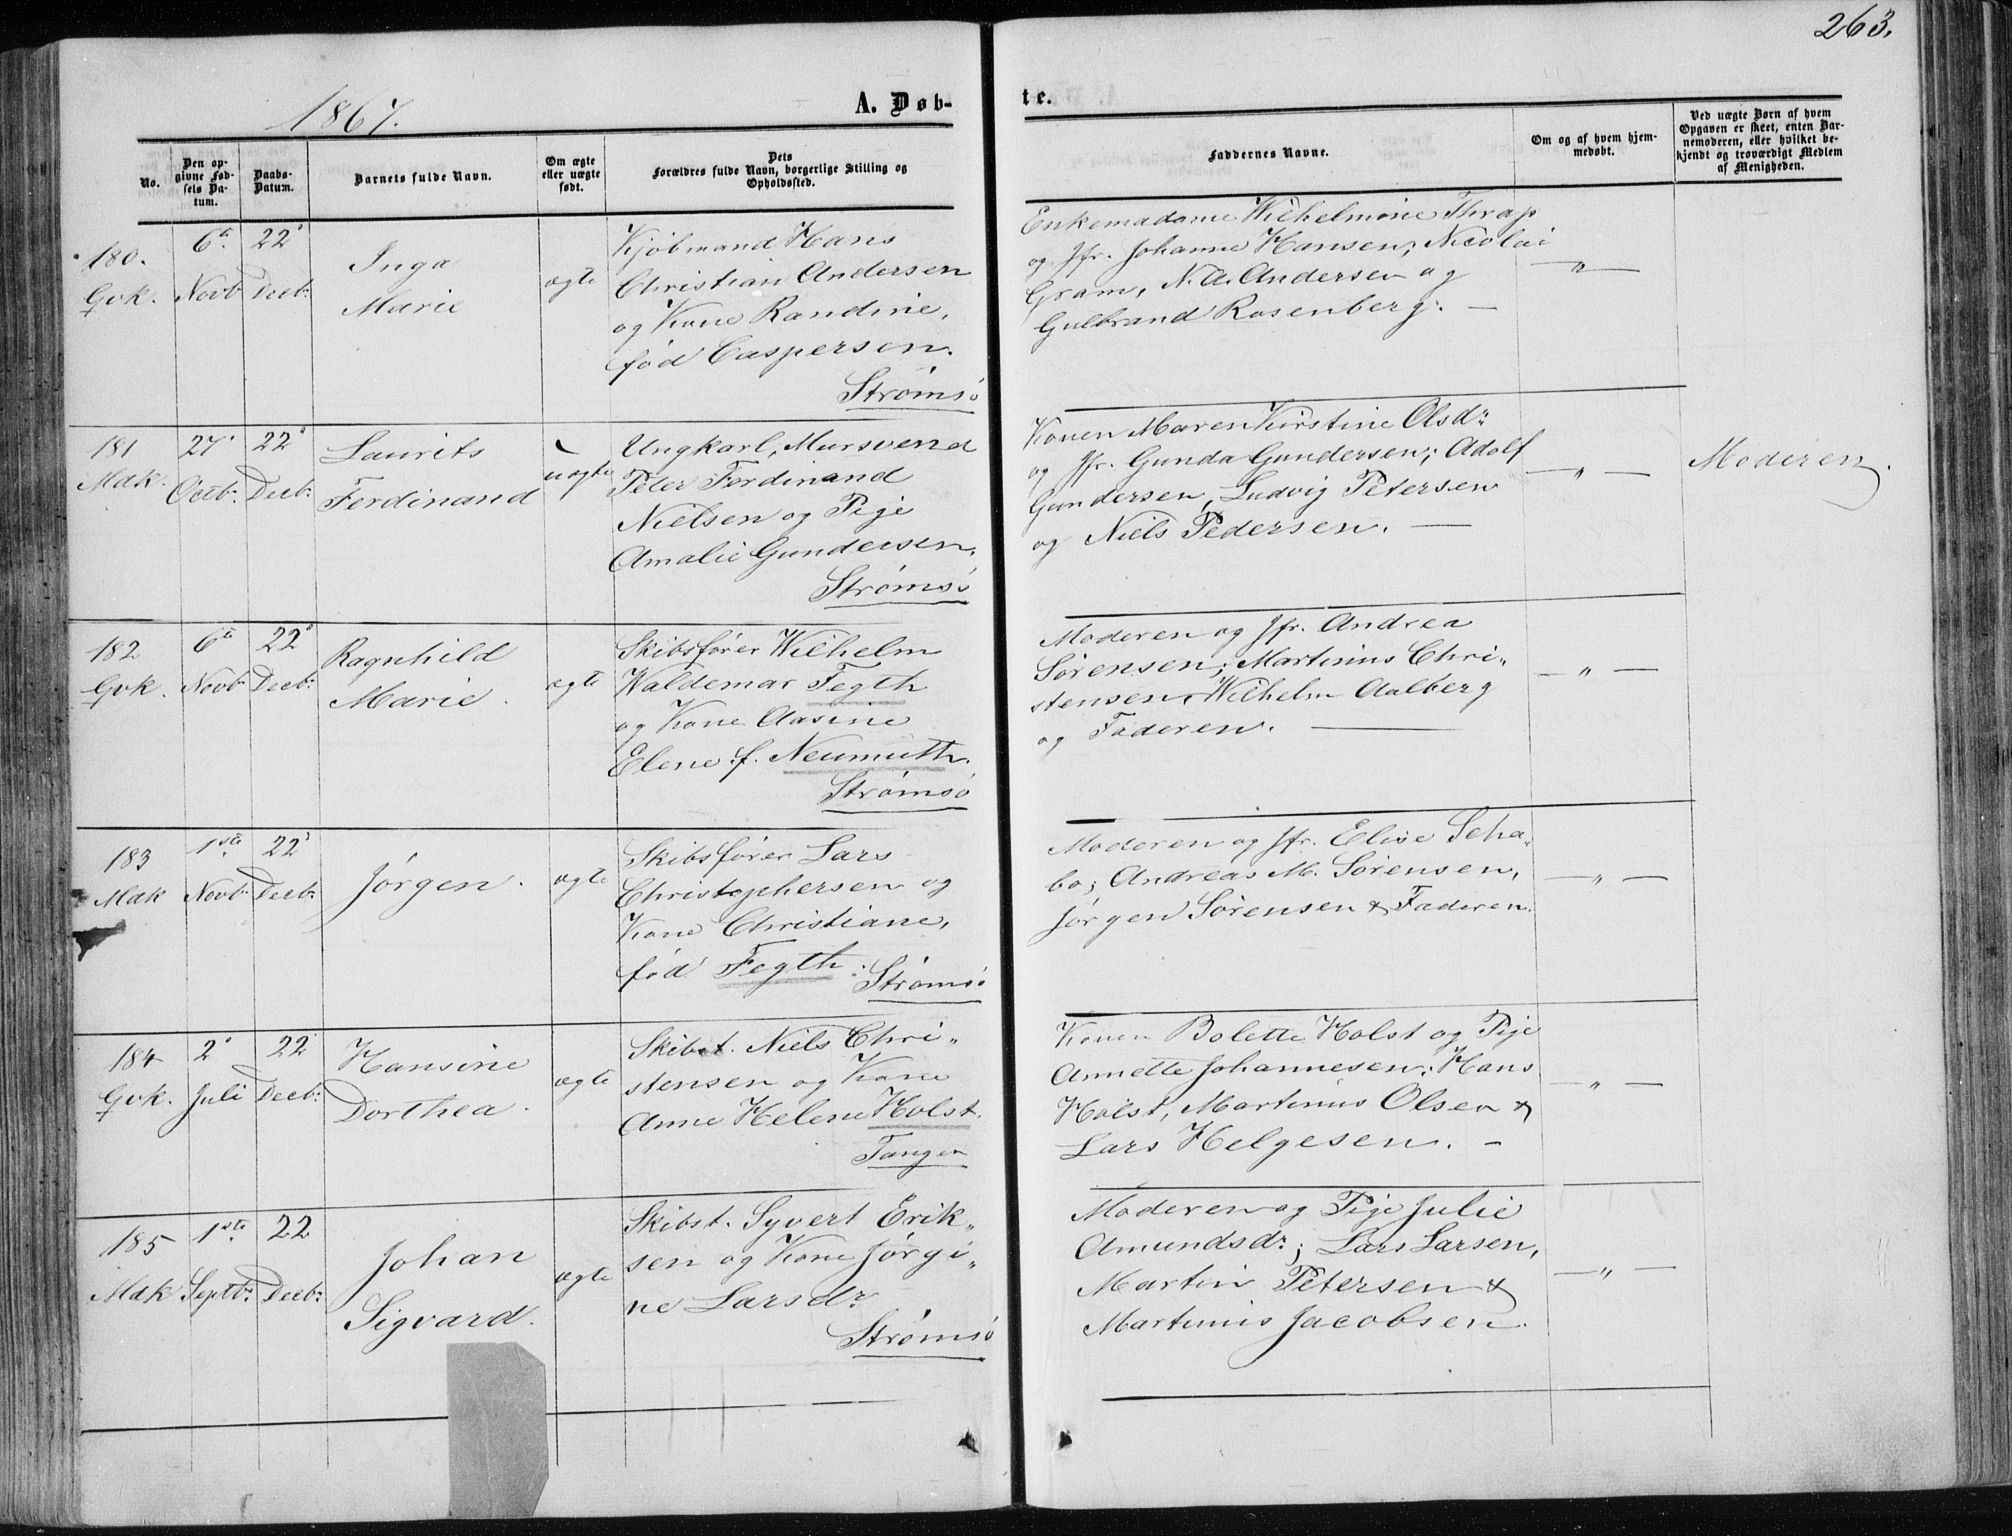 263.
1867.
A. Døb-
te.
No.
Den op-
givne Fød-
sels Da-
tum.
Daabs-
Datum.
Barnets fulde Navn.
Om ægte
eller uægte
født.
Dets
Forældres fulde Navn, borgerlige Stilling og
Opholdssted.
Faddernes Navne.
Om og af hvem hjem-
medøbt.
Ved uægte Børn af hvem
Opgaven er skeet, enten Bar-
nemoderen, eller hvilket be-
kjendt og troværdigt Medlem
af Menigheden.
180.
Qvk.
6te
Novb
22'
Decbr
Inga
Marie
ægte
Kjøbmand Hans
Christian Andersen
og Kone Randine,
fød Caspersen.
Strømsø
Enkemadame Wilhelmine Thrap
og Jfr. Johanne Hansen; Nicolai
Gram, N. A. Andersen og
Gulbrand Rosenberg. —
— " —
181
Mdk.
27'
Octbr
22'
Decbr
Laurits
Ferdinand
uægte
Ungkarl, Mursvend
Peter Ferdinand
Nielsen og Pige
Amalie Gundersen.
Strømsø
Konen Maren Kirstine Olsdr
og Jfr. Gunda Gundersen; Adolf
Gundersen, Ludvig Petersen
og Niels Pedersen. —
— " —
Moderen.
182
Qvk.
6te
Novb
22'
Decbr
Ragnhild
Marie.
ægte
Skibsfører Wilhelm
Waldemar Fegth
og Kone Aasine
Elene f. Neumuth.
Strømsø
Moderen og Jfr. Andrea
Sørensen; Martinius Chri„
stensen, Wilhelm Aalberg
og Faderen. —
— " —
183
Mdk
1ste
Novb
22'
Decbr
Jørgen.
ægte
Skibsfører Lars
Christophersen og
Kone Christiane,
fød Fegth. Strømsø
Moderen og Jfr. Elise Scha„
bo; Andreas M. Sørensen,
Jørgen Sørensen & Faderen.
— " —
184
Qvk.
2'
Juli
22'
Decbr
Hansine
Dorthea.
ægte
Skibst. Niels Chri„
stensen og Kone
Anne Helene Holst.
Tangen
Konen Bolette Holst og Pige
Annette Johannesen; Hans
Holst, Martinius Olsen &
Lars Helgesen. —
— " —
185
Mdk
1ste
Septbr
22
Decbr
Johan
Sigvard.
ægte
Skibst. Syvert Erik„
sen og Kone Jørgi„
ne Larsdr
Strømsø
Moderen og Pige Julie
Amundsdr; Lars Larsen,
Martin Petersen &
Martinius Jacobsen.
— " —